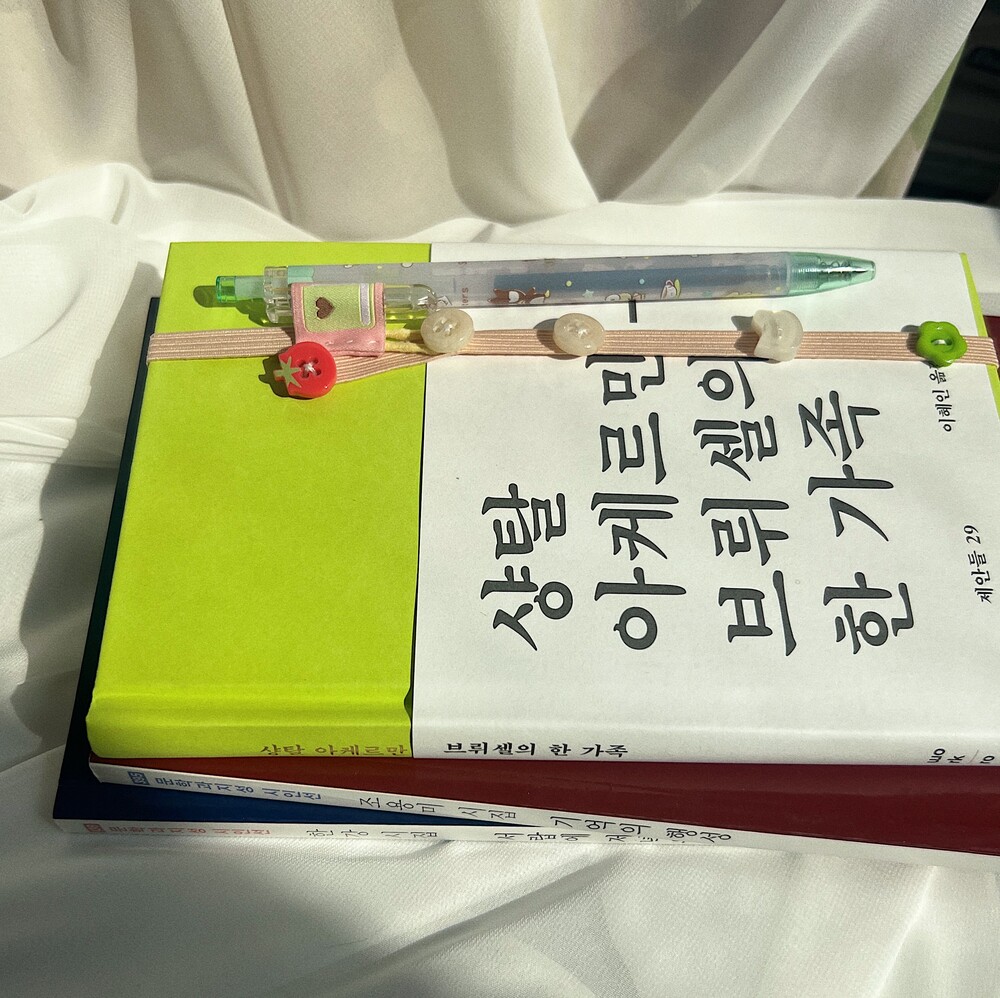 샹탈
아케르만
브뤼셀의
한 가족
이혜인 옮
제안들 29
샹탈 아케르만 브뤼셀의 한 가족
문학과지성 시인선 조용미 시집 기억의 행성
문학과지성 시인선 한강 시집 서랍에 저녁